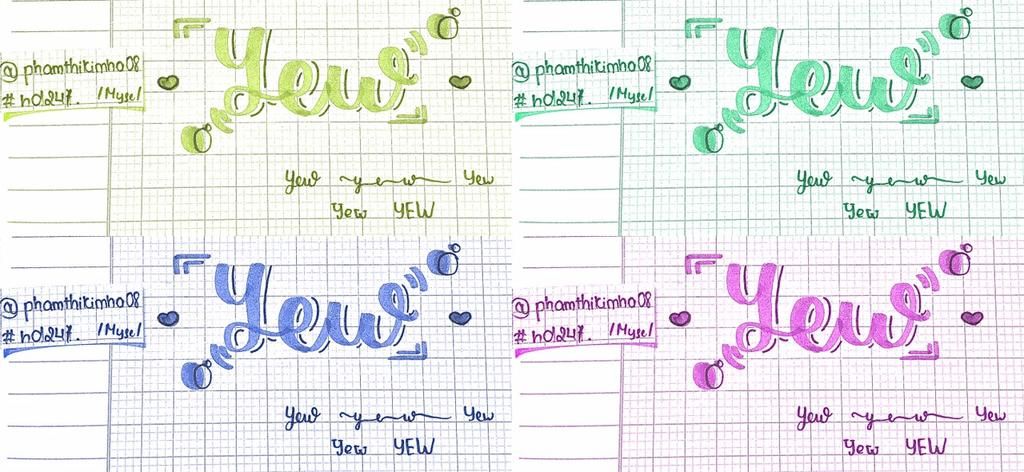 Yew
@phamthikimha08
#hOl247. /Myse/
Yew yew Yew
Yew YEW
Yew
@phamthikimha08
#hOl247. /Myse/
Yew yew Yew
Yew YEW
Yew
@phamthikimha08
#hOl247. /Myse/
Yew yew Yew
Yew YEW
Yew
@phamthikimha08
#hOl247. /Myse/
Yew yew Yew
Yew YEW